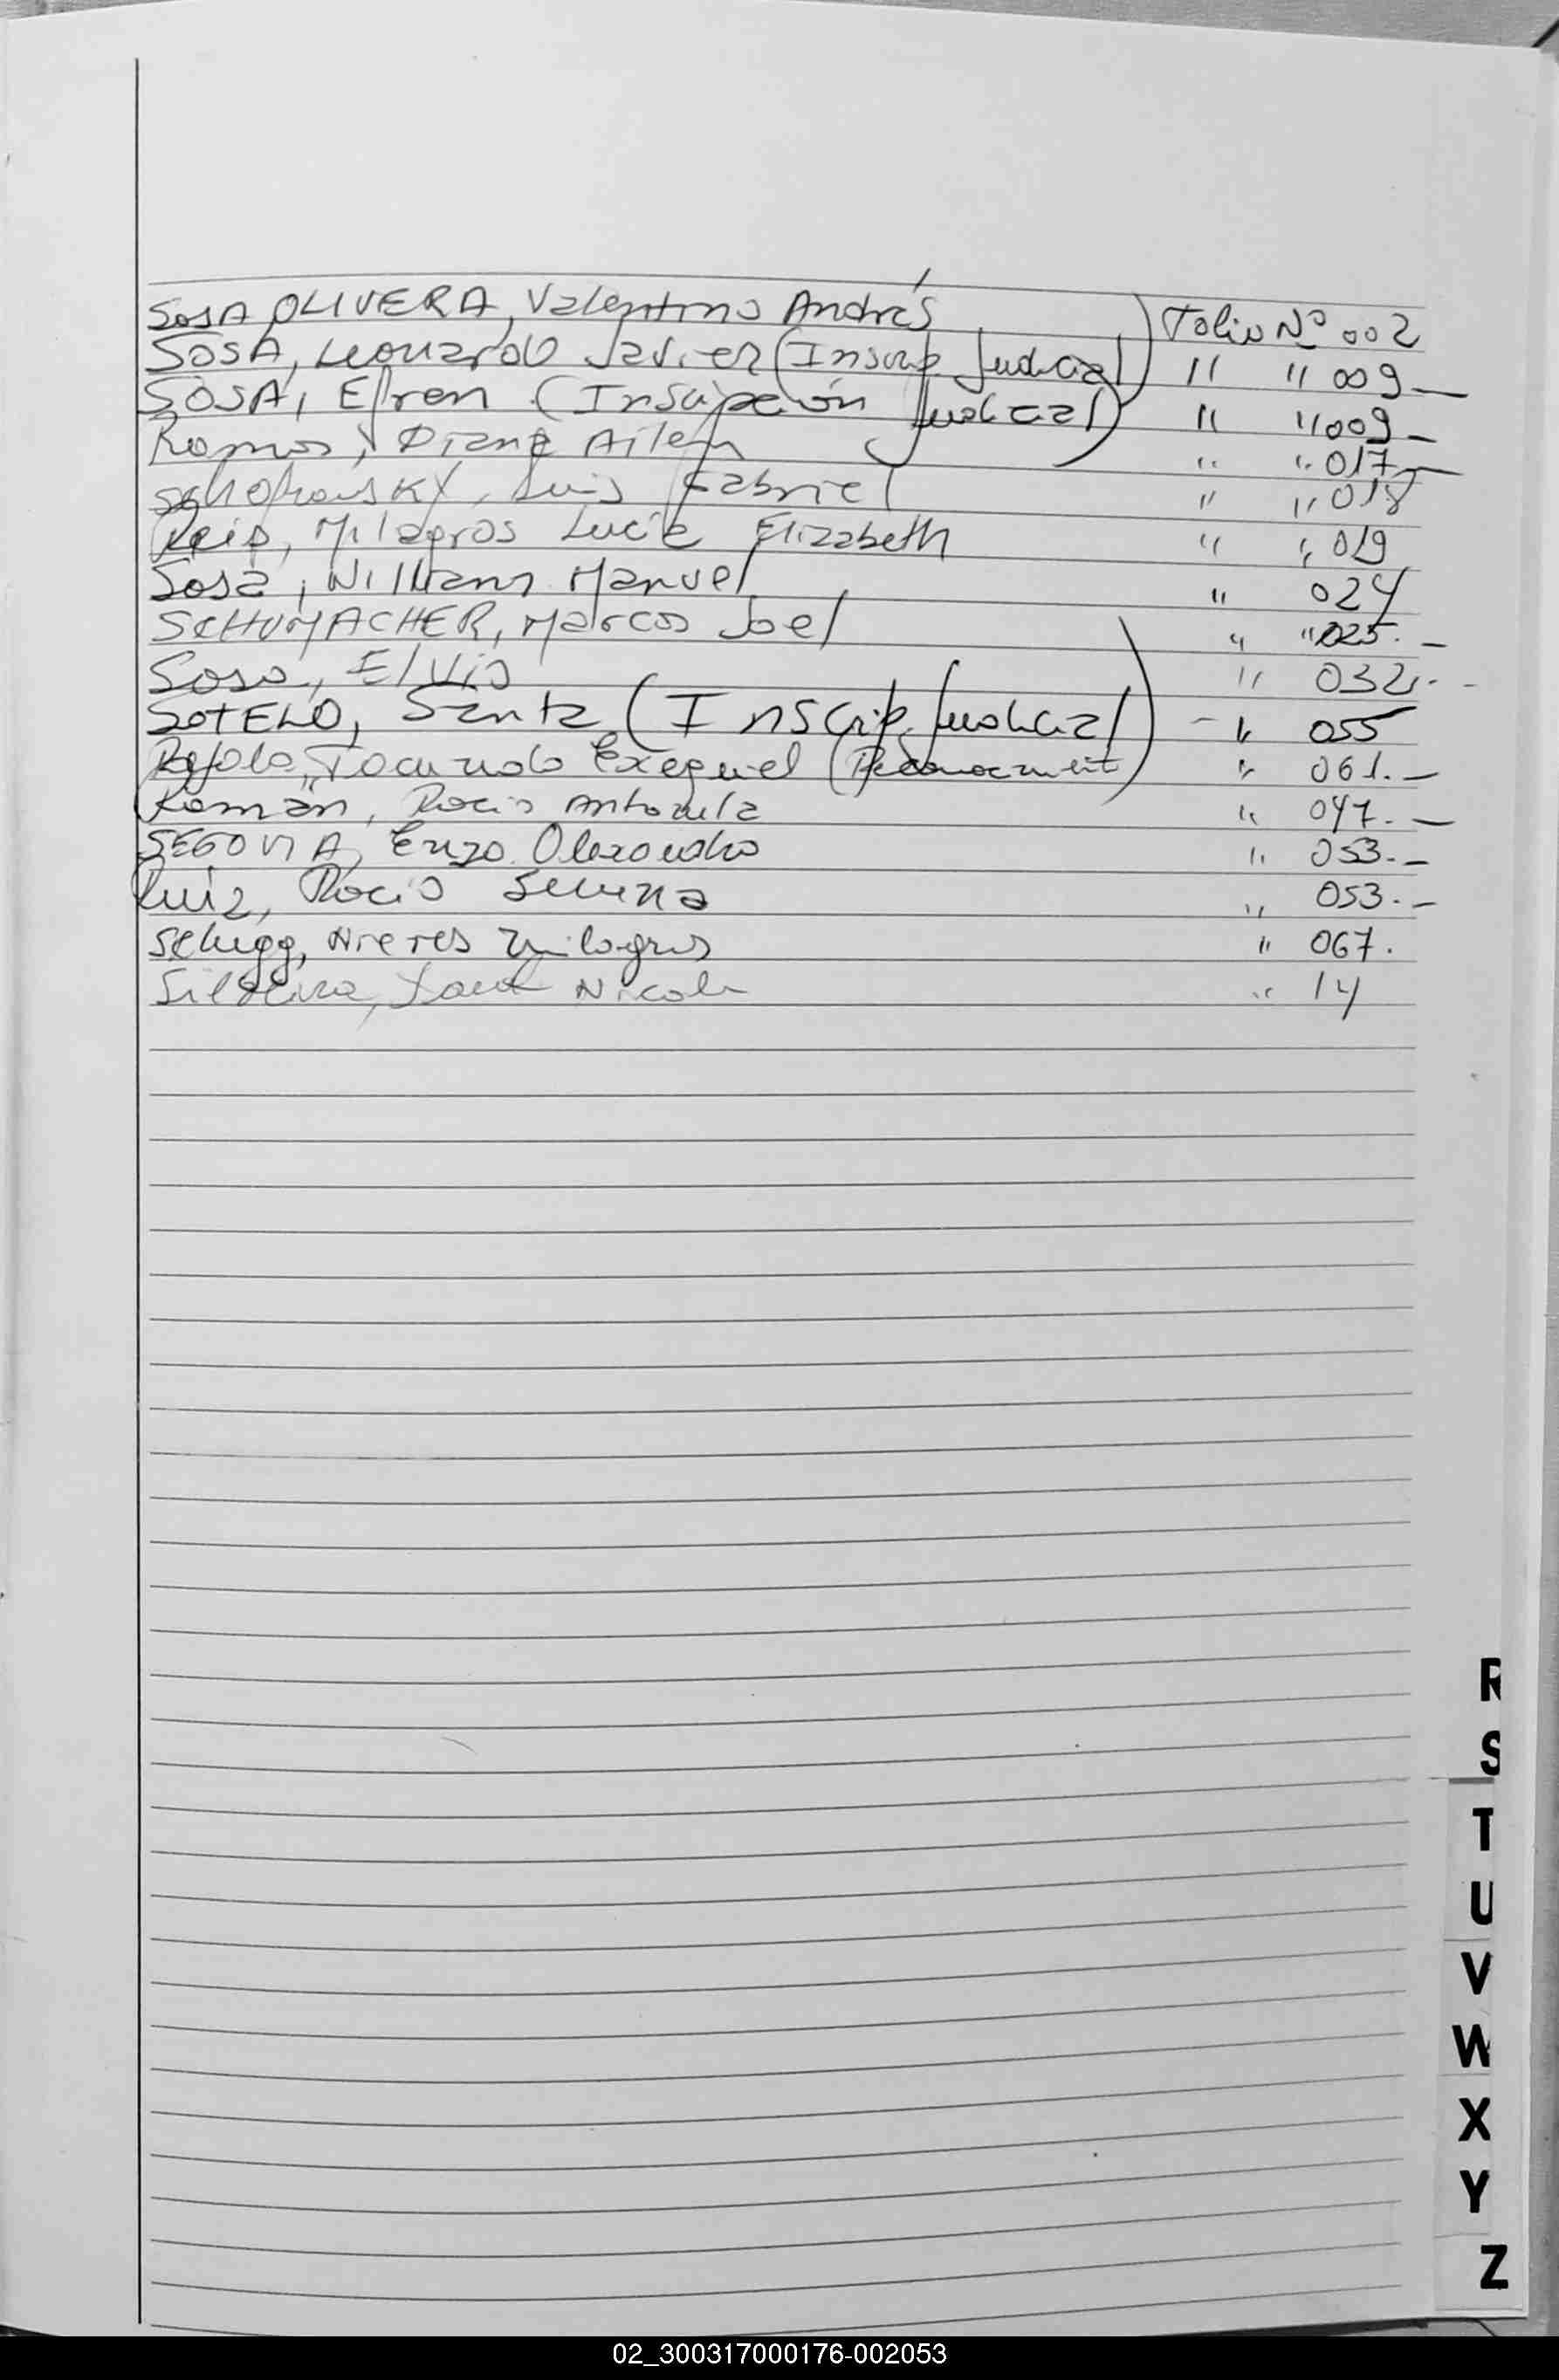 SOSA OLIVERA, Valentino Andrés Folio Nº 002
SOSA, Leonardo Javier (Inscrip Judicial) " " 009_
SOSA, Efren (Inscripción Judicial) " " 009_
Ramos, Diana Ailen " " 017_
Luis Gabriel " " 018
Milagros Lucía Elizabeth " " 019
Sosa, William Manuel " 024
SCHUMACHER, Marcos Joel " " 025._
Sosa, Elvis " 032.-
SOTELO, Santa (Inscrip. Judicial) - " 055
Facundo Exequiel " 061._
Román, Rocío Antonela " 047._
SEGOVIA, Enzo Alexandro " 053._
Ruiz, Rocio " 053._
Schigg, Milagros " 067.
Nicole " 14
R
S
T
U
V
W
X
Y
Z
02_300317000176-002053